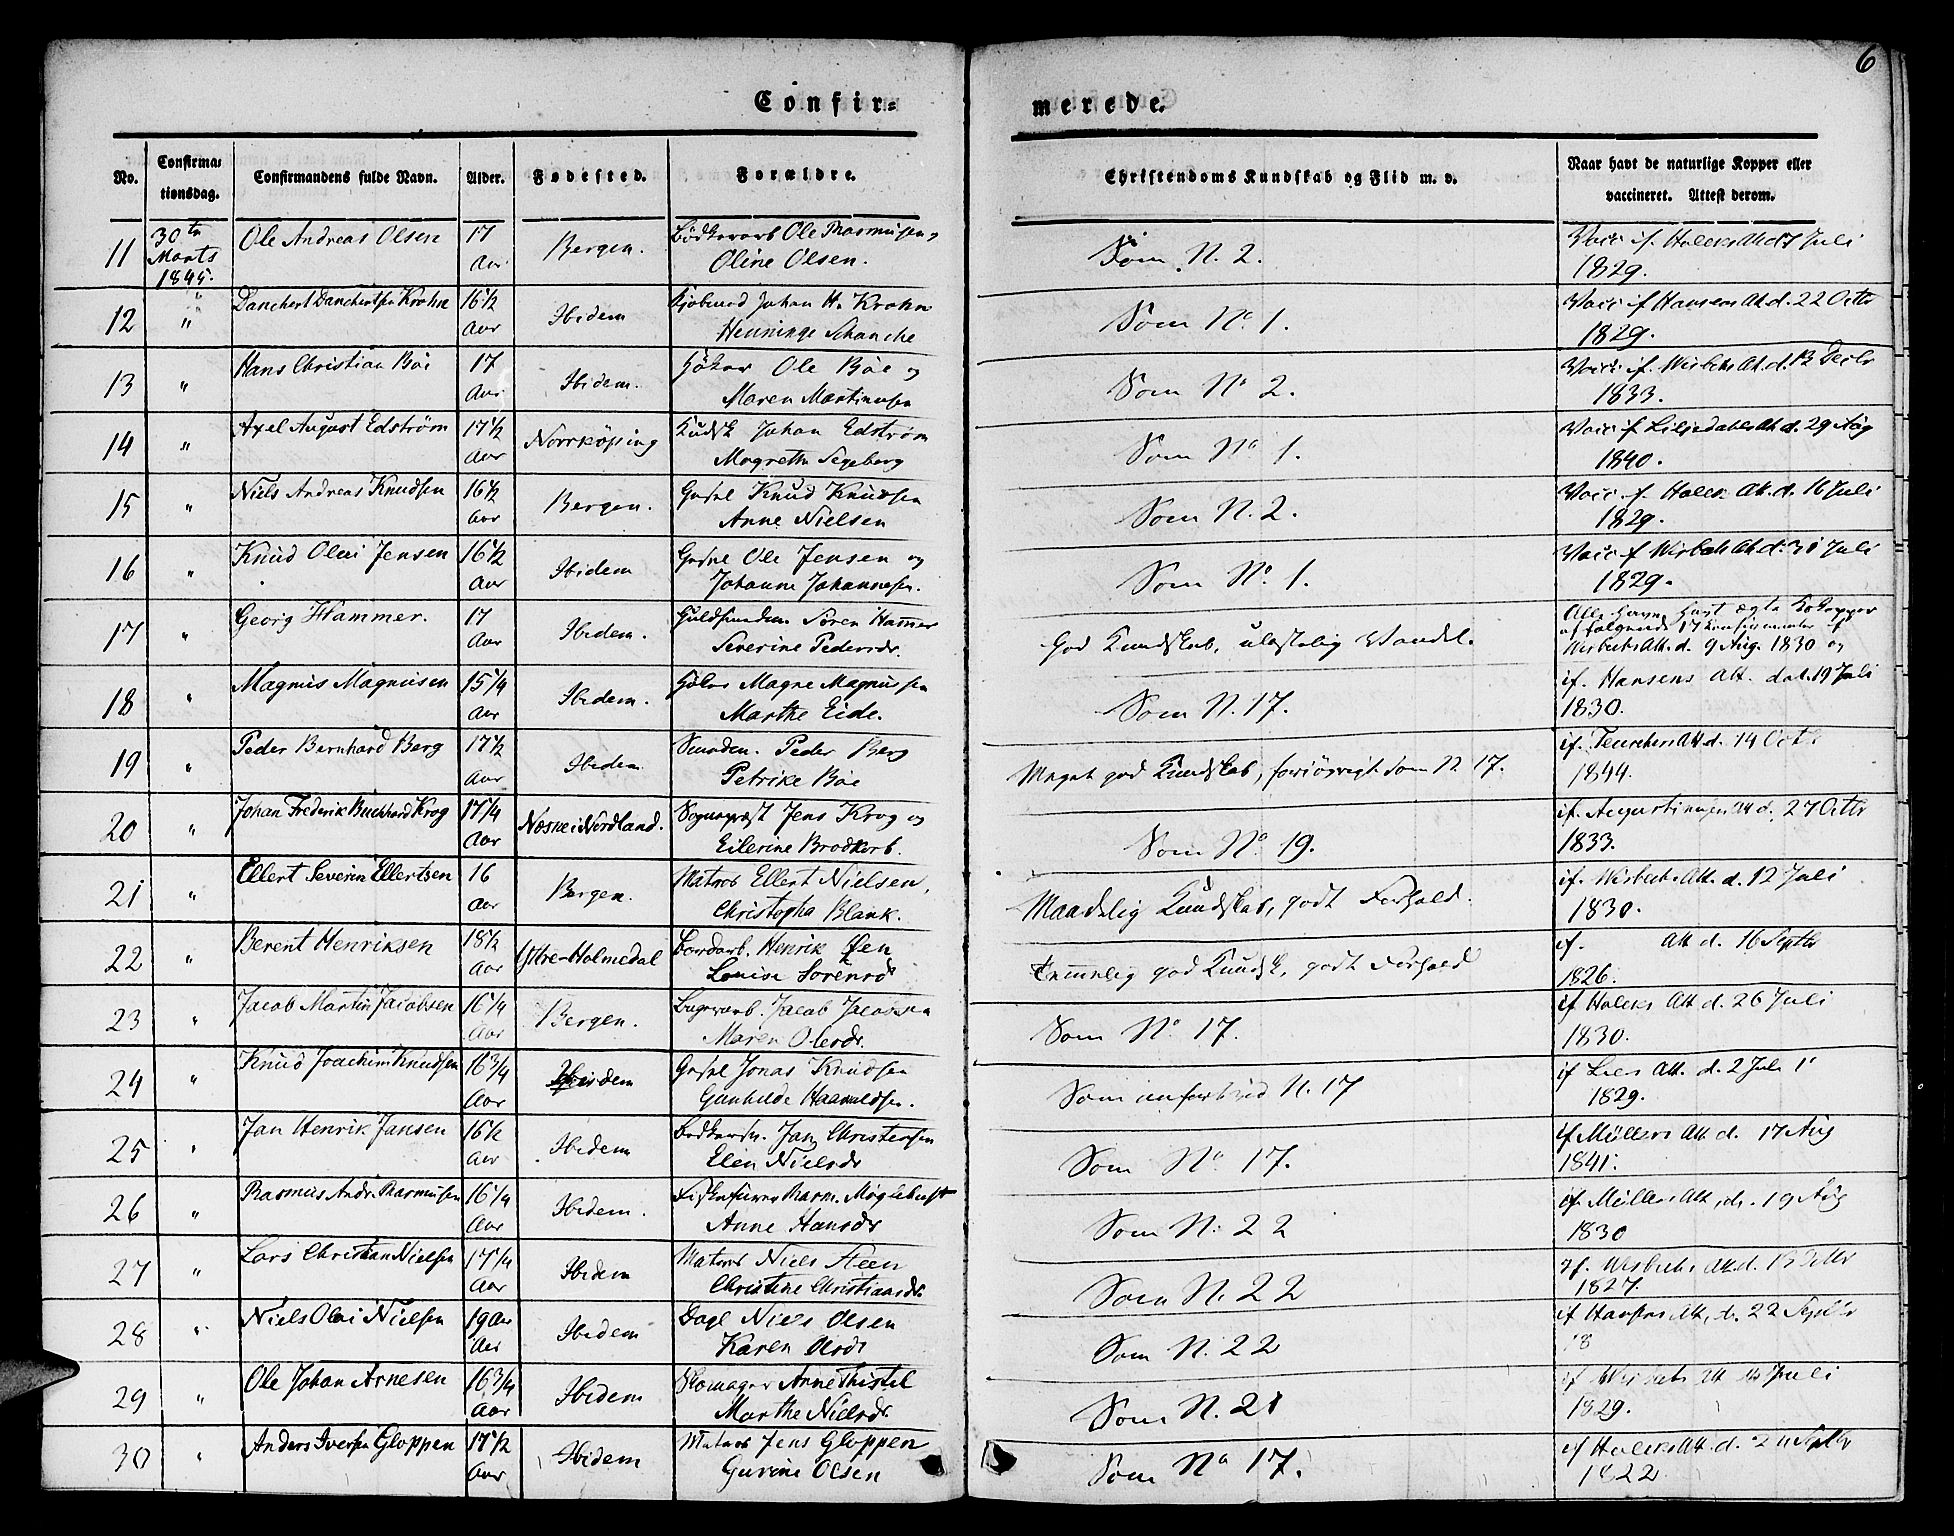 6
Confir=
merede.
No.
Confirma=
tionsdag.
Confirmandens fulde Navn.
Alder.
Fødested.
Forældre.
Christendoms Kundskab og Flid m. v.
Naar havt de naturlige Kopper eller
vaccineret. Attest derom.
11
30te
Marts
1845.
Ole Andreas Olsen
17
Aar
Bergen.
Ole Rasmusen,
Oline Olsen.
Som N. 2.
Juli
1829.
12
"
Danchert Danchertsen Krohn
16 1/2
Aar
Ibidem
Johan H. Krohn
Henninge Schanche
Som No. 1.
Vacc if Hansens Att. d. 22 Octbr
1829.
13
"
Hans Christian Böe
17
Aar
Ibidem.
Ole Böe og
Maren Martinusen
Som No 2.
Vacc if. Wisbechs Att. d. 13 Decbr
1833.
14
"
Axel August Edström
17 1/2
Aar
Norrköping
Kudsk Johan Edström
Magretha Segeberg
Som No 1.
Vacc if Liljedahls Att d. 29 Aug
1840.
15
"
Niels Andreas Knudsen
16 1/2
Aar
Bergen.
Knud Knudsen
Anne Nielsen
Som N. 2.
Att. d. 16 Juli
1829.
16
"
Knud Olai Jensen
16 1/2
Aar
Ibidem
Ole Jensen og
Johanne Johannesen.
Som No. 1.
Vacc if Wisbechs Att. d. Juli
1829.
17
"
Georg Hammer.
17
Aar
Ibidem.
Sören Hammer
Severine Pedersdr.
God Kundskab, ulastelig Vandel.
Wisbechs Att. d. 9 Aug. 1830 og
18
"
Magnus Magnusen
15 1/4
Aar
Ibidem.
Magne Magnussen
Marthe Eide.
Som N. 17.
if. Hansens Att. dat. 19 Juli
1830.
19
"
Peder Bernhard Berg
17 1/2
Aar
Ibidem
Peder Berg
Petrike Böe
Meget god Kundskab, forøvrigt som N 17.
Att d. 14 Octb
1844.
20
"
Johan Frederik Buchhard Krog
17 1/4
Aar
Næsne i Nordland.
Sognepræst Jens Krog og
Eilerine Brodkorb.
Som No. 19.
if. Augustinusen Att d. 27 Octbr
1833.
21
"
Ellert Severin Ellertsen
16
Aar
Bergen.
Matros Ellert Nielsen,
Christopha Blank.
Maadelig Kundskab, godt Forhold.
if. Wisbechs Att. d. 12 Juli
1830.
22
"
Berent Henriksen
18 1/2
Aar
Ytre-Holmedal
Henrik Øen
Louise Sorensd
Temmelig god Kundsk, godt Forhold
if. Att d. 16 Septbr
1826.
23
"
Jacob Martin Jacobsen
16 1/4
Aar
Bergen.
Jacob Jacobsen
Maren Olesdr.
Som No 17.
if Holcks Att d. 26 Juli
1830.
24
"
Knud Joachim Knudsen
16 3/4
Aar
Ibidem
Jonas Knudsen
Gunhilde Haavaldsen.
Som N. 17
if Lies Att. d. 2 Juli
1829.
25
"
Jan Henrik Jansen
16 1/2
Aar
Ibidem
Jan Christensen
Elen Nielsdr
Som No 17.
if Müllers Att d. 17 Aug
1841.
26
"
Rasmus Andr. Rasmusen
16 1/4
Aar
Ibidem.
Rasm. Møglebust
Anne Hansdr
Som N: 22
if. Müllers Att, d. 19 Aug
1830
27
"
Lars Christian Nielsen
17 1/4
Aar
Ibidem
Matros Niels Steen
Christine Christiansdr
Som N. 22
if. Wisbechs Att. d. 13
1827.
28
"
Niels Olai Nielsen
19 Aar
Aar
Ibidem
Niels Olsen
Karen Olsdr
Som N. 22
Att, d. 22 Septbr
18
29
"
Ole Johan Arnesen
16 3/4
Aar
Ibidem
Skomager Arne Thistel
Marthe Nielsdr
Som N. 21
Juli
1829.
30
"
Anders Iversen Gloppen
17 1/2
Aar
Ibidem
Matros Jens Gloppen
Gurine Olsen
Som No 17.
if Holcks Att. d. Septbr
1822